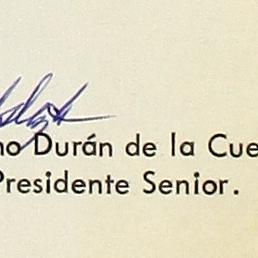 no Durán de la Cue
Presidente Senior.